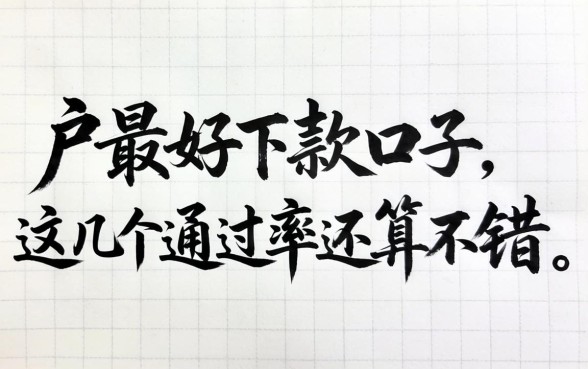 户最好下款口子，
这几个通过率还算不错。